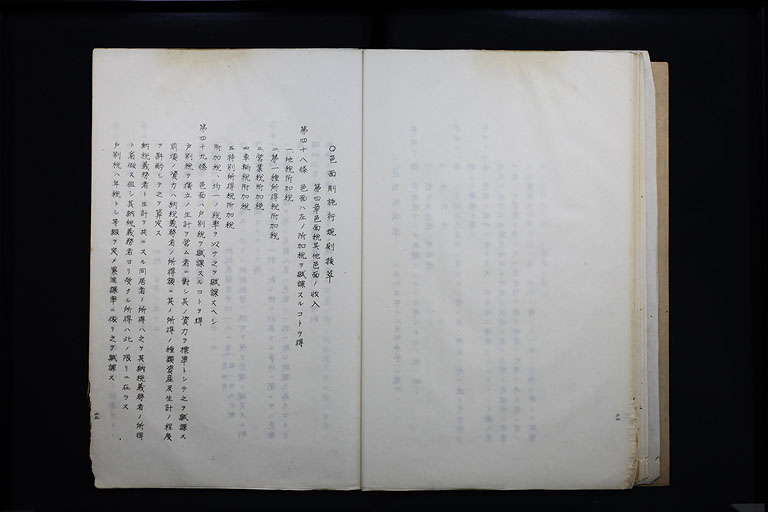 〇邑面制施行規則抜萃
第四章邑面税其他邑面ノ收入
第四十八條 邑面ハ左ノ附加税ヲ賦課スルコトヲ得
一地税附加税
二第一種所得税附加税
三營業税附加税
四車輛税附加税
五特別所得税附加税
附加税ハ均一ノ税率ヲ以テ之ヲ賦課スベシ
第四十九條 邑面ハ戸別税ヲ賦課スルコトヲ得
戸別税ハ獨立ノ生計ヲ營ム者ニ對シ其ノ資力ヲ標準トシテ之ヲ賦課ス
前項ノ資力ハ納税義務者ノ所得額ニ其ノ所得ノ種類資産及生計ノ程度
ヲ斟酌シテ之ヲ算定ス
納税義務者ト生計ヲ共ニスル同居者ノ所得ハ之ヲ其納税義務者ノ所得
ト看做ス但シ其納税義務者ヨリ受クル所得ハ此ノ限リニ在ラズ
戸別税ハ年税トシ等級ヲ定メ累進課率ニ依リ之ヲ賦課ス